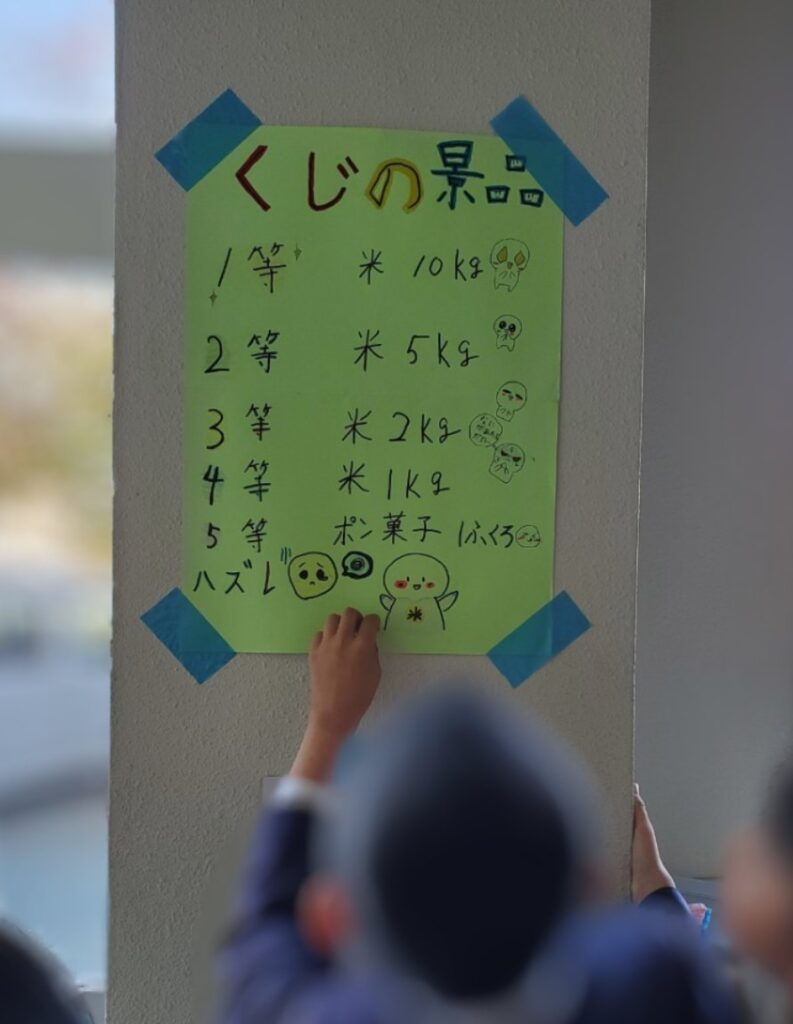 くじの景品
1等 米 10kg
2等 米 5kg
3等 米 2kg
4等 米 1kg
5等 ポン菓子 1ふくろ
ハズレ
米